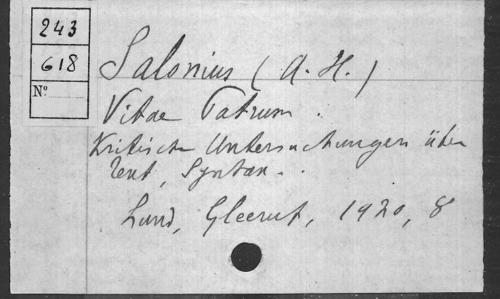 243
618
N°
Salonius (A. H.)
Vitae Patrum.
Kritische Untersuchungen über
Text, Syntax..
Lund, Gleerup, 1920, 8